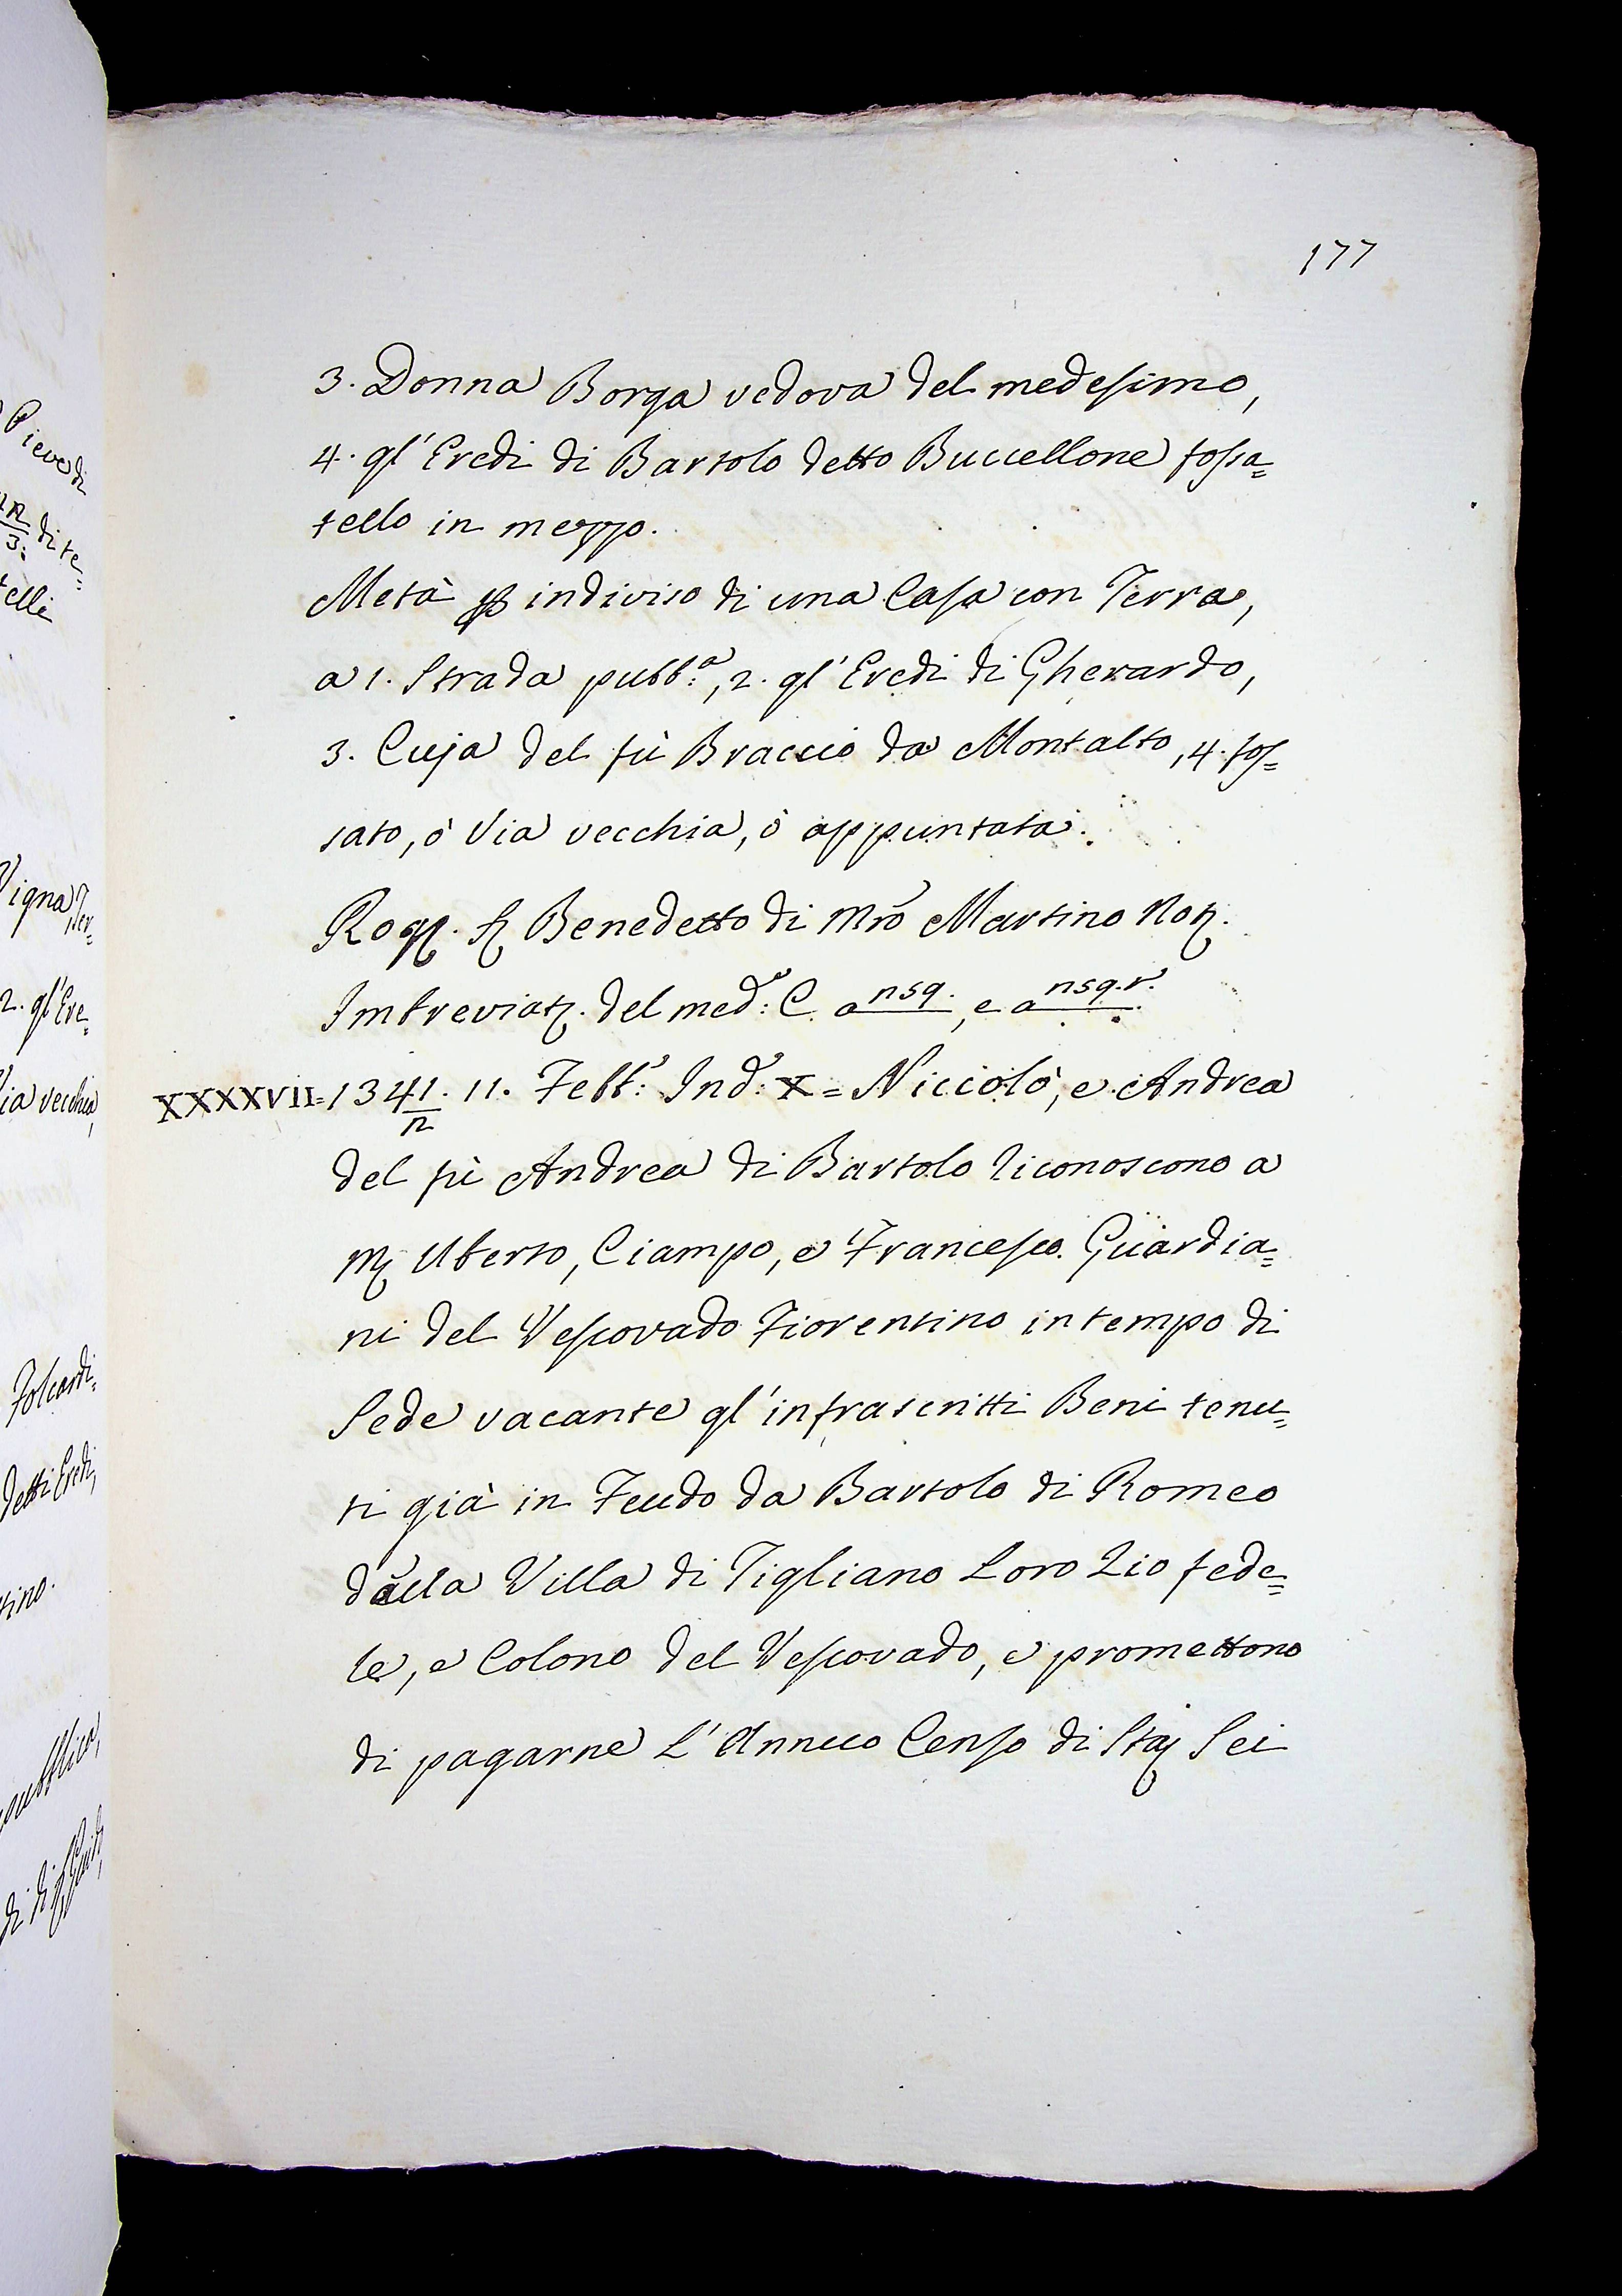 Pieve di
di te=
telli
Vigna, Ter=
2. gl'Ere=
Via vecchia,
Folcardi=
detti Eredi,
tino.
pubblica,
177
3. Donna Borga vedova del medesimo,
4. gl'Eredi di Bartolo detto Buccellone fossa=
tello in mezzo.
Metà indiviso di una Casa con Terra,
a 1. Strada pubb:ª, 2. gl'Eredi di Gherardo,
3. Cuja del fù Braccio da Montalto, 4. fos=
sato, ò Via vecchia, ò appuntata.
Rog. S. Benedetto di Mrõ Martino Not.
Imbreviat. del med:º C. a nsq., e a nsq.r.
XXXXVII=1341/2. 11. Febb:º Ind:º X= Niccolò, e Andrea
del fù Andrea di Bartolo riconoscono a
M. Uberto, Ciampo, e Francesco Guardia=
ni del Vescovado Fiorentino in tempo di
Sede vacante gl'infrascritti Beni tenu=
ti già in Feudo da Bartolo di Romeo
dalla Villa di Tigliano Loro Zio fede=
le, e Colono del Vescovado, e promettono
di pagarne L'Annuo Censo di Staj Sei